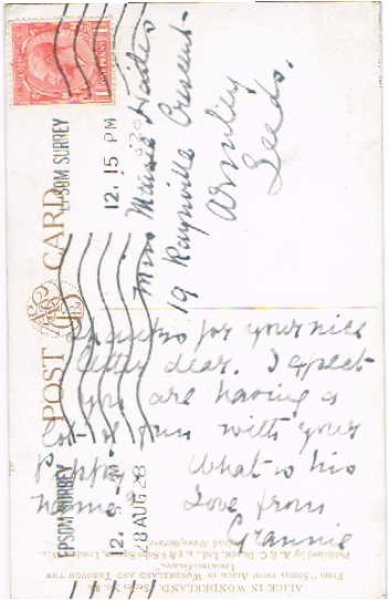 POST CARD
EPSOM SURREY
12. 15 PM
EPSOM SURREY
12. 15 PM
28 AUG 28
Miss Maisie
19 Raynville Crescent
Armley
Leeds.
Thanks for your nice
letter dear. I expect
you are having a
lot of fun with your
Puppy. What is his
name? Love from
Grannie
ALICE IN WONDERLAND.
From "Scenes from Alice in Wonderland and Through the
Looking-Glass."
Published by A. & C. Black, Ltd., 4, 5 & 6 Soho Sq., London, W.1.